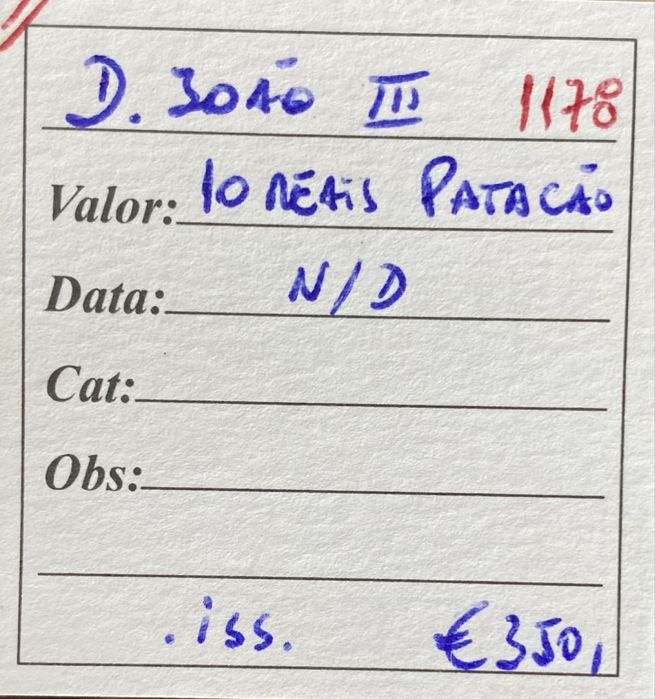 D. João III 1178
Valor: 10 REAIS PATACÃO
Data: N/D
Cat:
Obs:
.iss. €350,